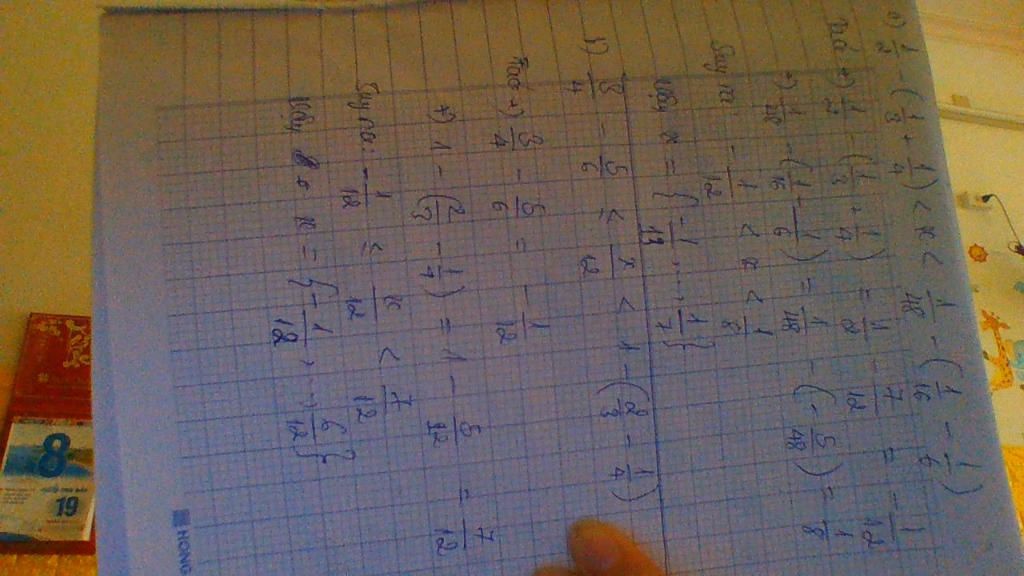 a) 1/2 - (1/3 + 1/4) < x < 1/48 - (1/16 - 1/6)
+) 1/2 - (1/3 + 1/4) = 1/2 - 7/12 = -1/12
+) 1/48 - (1/16 - 1/6) = 1/48 - (-5/48) = 1/8
Suy ra: -1/12 < x < 1/8
Vậy x = { -1/13 ..... 1/7 }
b) 3/4 - 5/6 ≤ x/12 < 1 - (2/3 - 1/4)
+) 3/4 - 5/6 = -1/12
+) 1 - (2/3 - 1/4) = 1 - 5/12 = 7/12
Suy ra: -1/12 ≤ x/12 < 7/12
Vậy x = { -1/12, ... 6/12 }
HONG
8
19